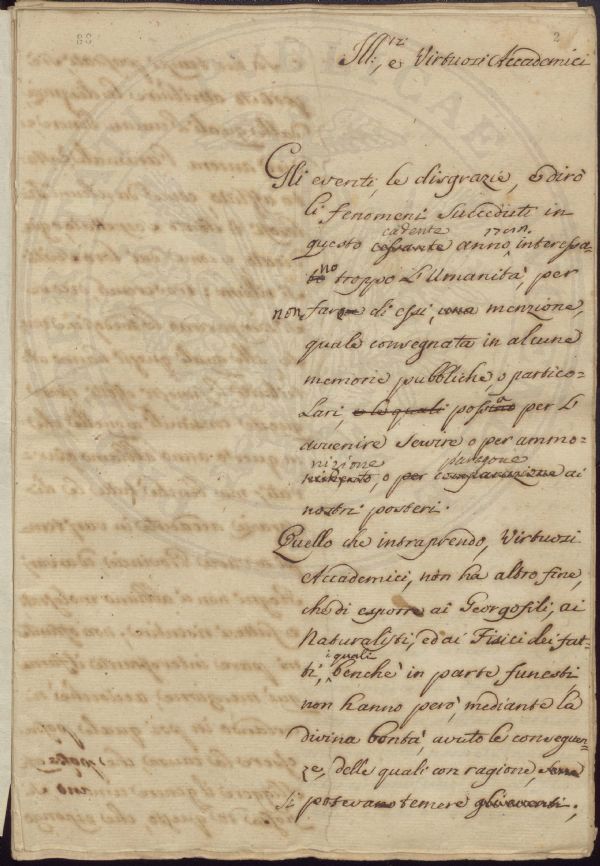 88
2
Ill:ri, e Virtuosi Accademici
Gli eventi, le disgrazie, e dirò
li fenomeni succeduti in
cadente
questo cessante anno, interessa-
no troppo l'Umanità, per
non fare di essi, una menzione,
quale consegnata in alcune
memorie pubbliche, o partico-
lari, e le quali possa per l'
avvenire servire o per ammo-
nizione paragone
o per comparazione ai
nostri posteri.
Quello che intraprendo, Virtuosi
Accademici, non ha altro fine,
che di esporre ai Georgofili, ai
Naturalisti, ed ai Fisici dei fat-
i quali
ti, benchè in parte funesti
non hanno però, mediante la
divina bontà, avuto le conseguen-
ze, delle quali con ragione,
si potevano temere